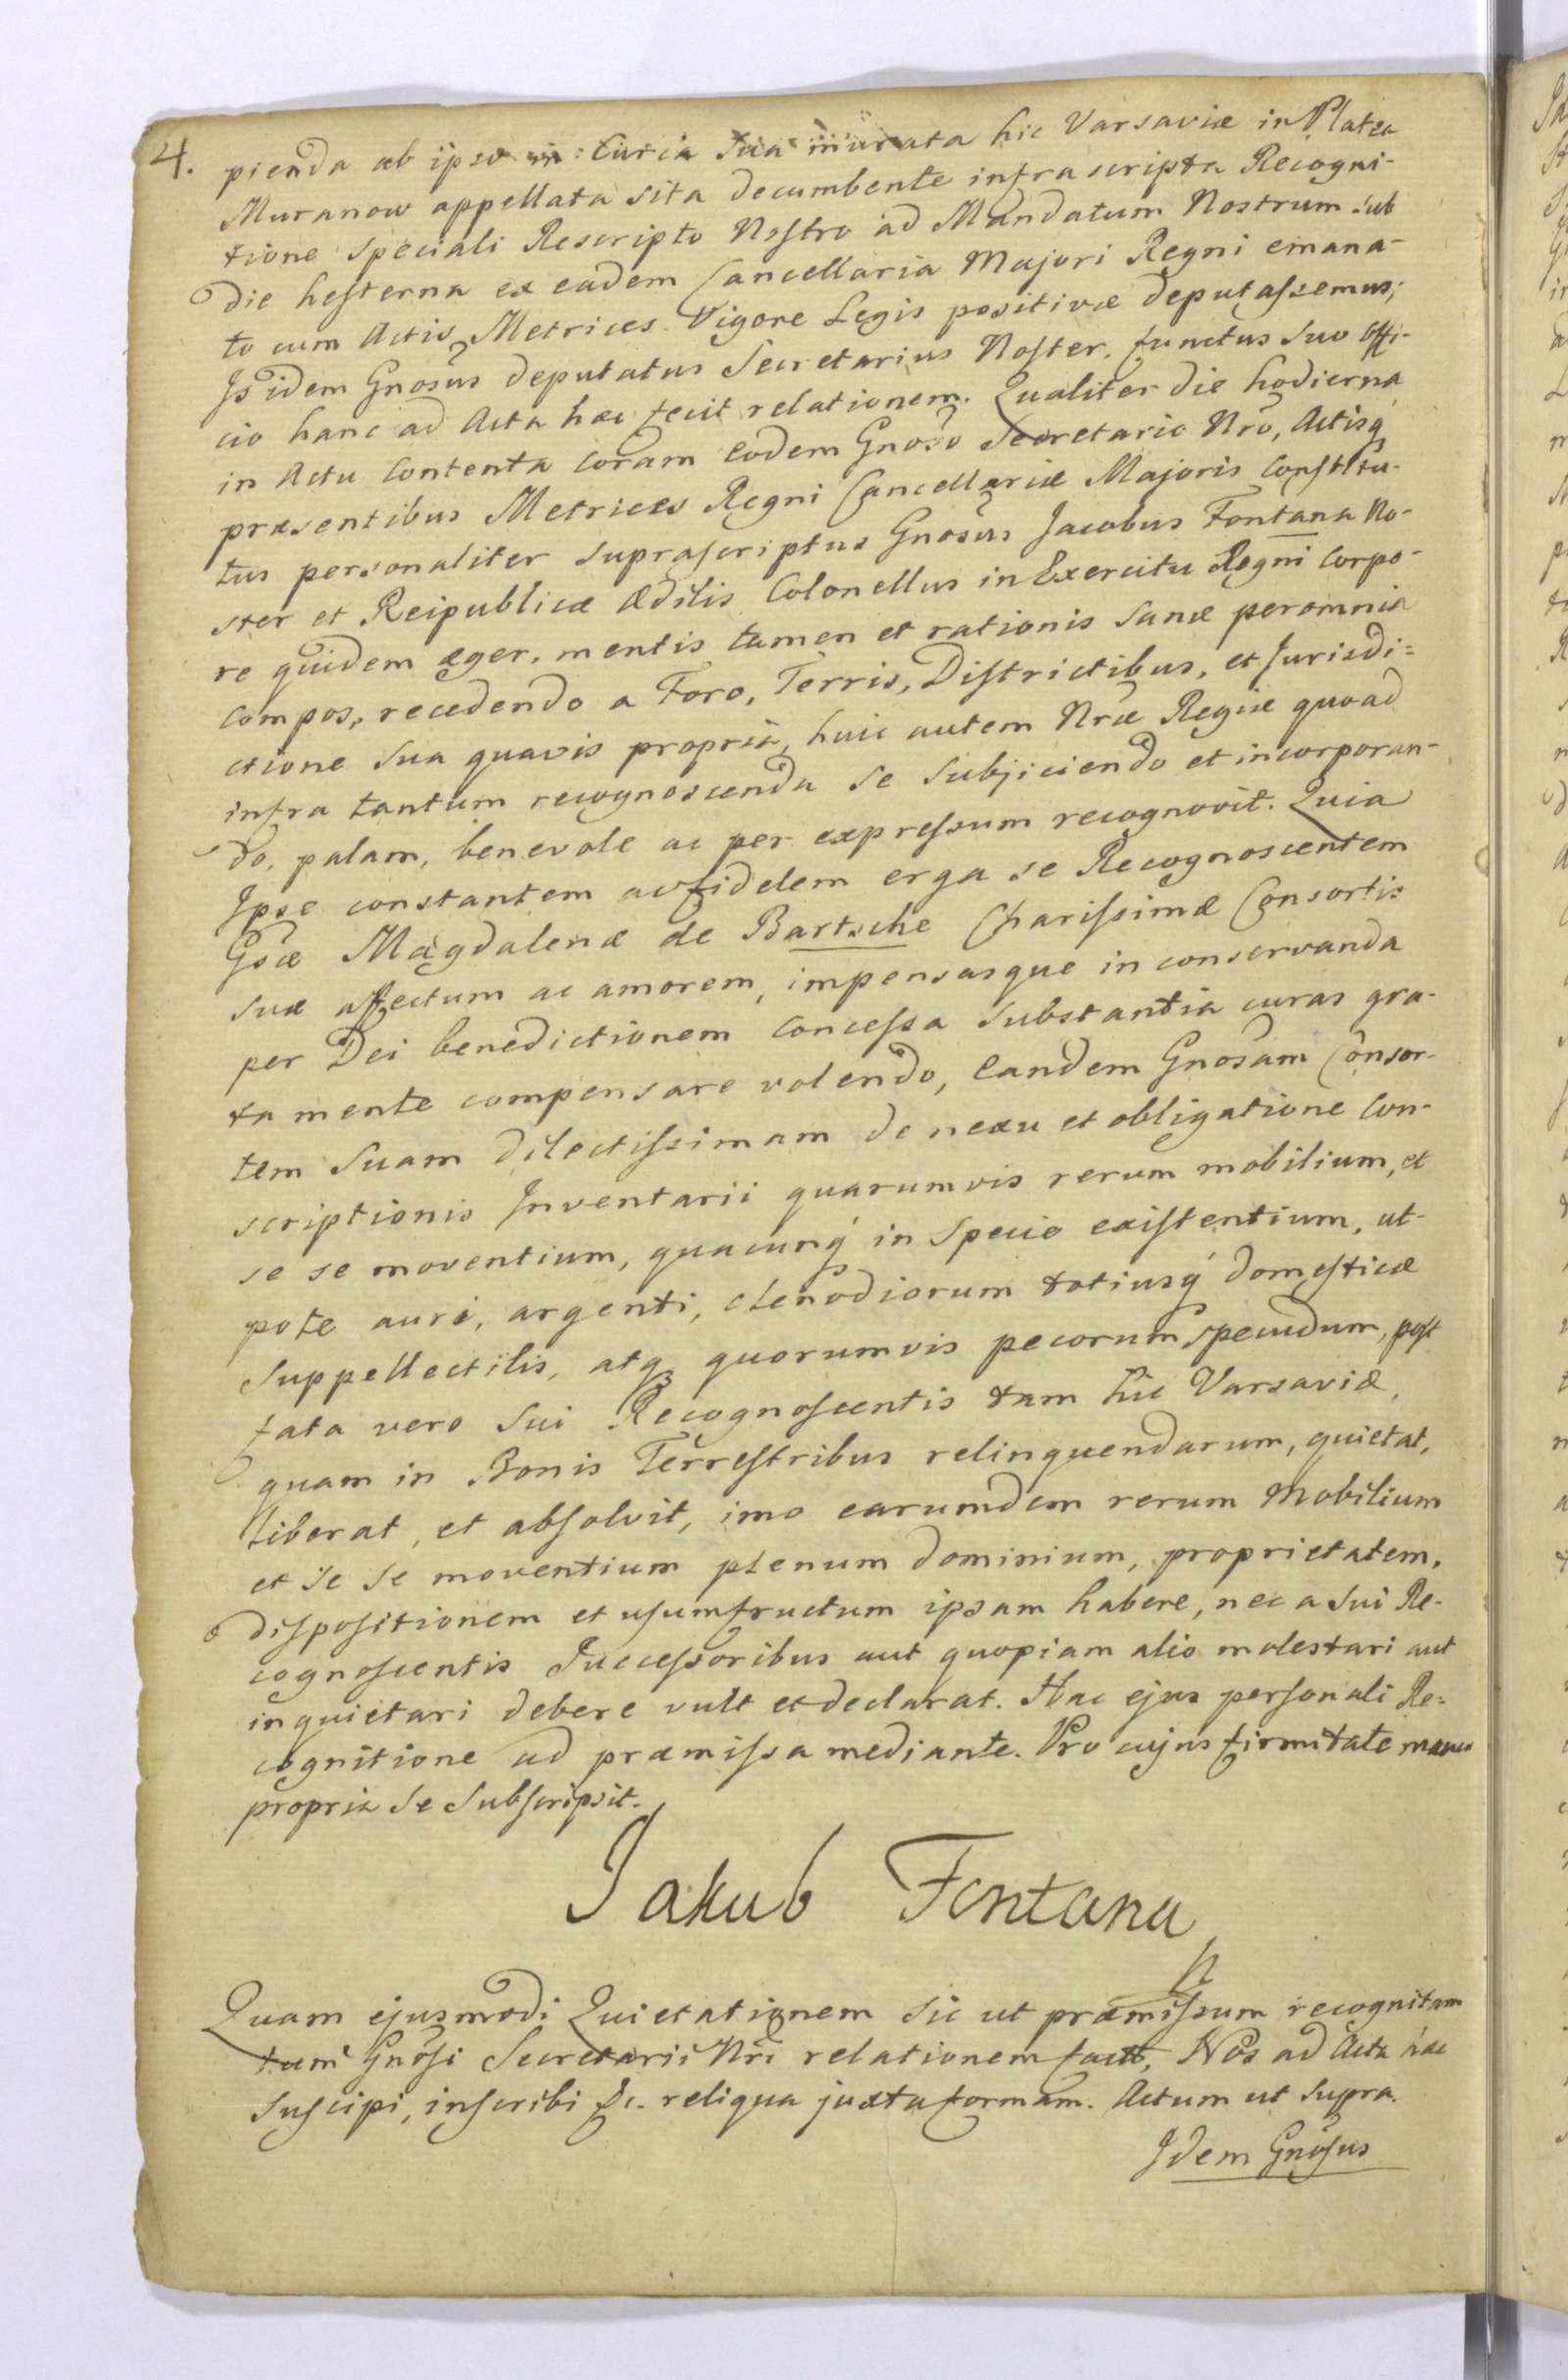 4. pienda ab ipso in Curia sua murata hic Varsaviæ in Platea
Muranow appellata sita decumbente infra scripta Recogni-
tione speciali Rescripto Nostro ad Mandatum Nostrum sub
die hesterna ex eadem Cancellaria Majori Regni emana-
to cum Actis Metrices Vigore Legis positivæ deputassemus;
Is idem Gnosus deputatus Secretarius Noster, functus suo offi-
cio hanc ad Acta hæc fecit relationem. Qualiter die hodierna
in Actu Contenta coram eodem Gnoso Secretario Nro, Actisq
præsentibus Metrices Regni Cancellariæ Majoris Constitu-
tus personaliter suprascriptus Gnosus Jacobus Fontana No-
ster et Reipublicæ Ædilis Colonellus in Exercitu Regni Corpo-
re quidem æger, mentis tamen et rationis sanæ peromnia
compos, recedendo a Foro, Terris, Districtibus, et Jurisdi=
ctione sua quavis propria, huic autem Nræ Regiæ quoad
infra tantum recognoscenda se subjiciendo et incorporan-
do, palam, benevole ac per expressum recognovit. Quia
Ipse constantem ac fidelem erga se Recognoscentem
Gsæ Magdalenæ de Bartsche Charissimæ Consortis
suæ affectum ac amorem, impensasque in conservanda
per Dei benedictionem concessa substantia curas gra-
ta mente compensare volendo, Eandem Gnosam Consor-
tem suam dilectissimam de nexu et obligatione Con-
scriptionis Inventarii quarumvis rerum mobilium, et
se se moventium, quacunq in specie existentium, ut-
pote auri, argenti, clenodiorum totiusq domesticæ
suppellectilis, atq quorumvis pecorum pecudum, post
fata vero sui Recognoscentis tam hic Varsaviæ,
quam in Bonis Terrestribus relinquendarum, quietat,
liberat, et absolvit, imo earumdem rerum mobilium
et se se moventium plenum dominium, proprietatem,
dispositionem et usumfructum ipsam habere, nec a sui Re-
cognoscentis Successoribus aut quopiam alio molestari aut
inquietari debere vult et declarat. Hac ejus personali Re=
cognitione ad præmissa mediante. Pro cujus firmitate manu
propria se subscripsit.
Jakub Fontana
Quam ejusmodi Quietationem sic ut præmissum recognitam
Gnosi Secretarii Nri relationem Nos ad Acta hæc
suscipi, inscribi &c. reliqua juxta formam. Actum ut supra.
Idem Gnosus